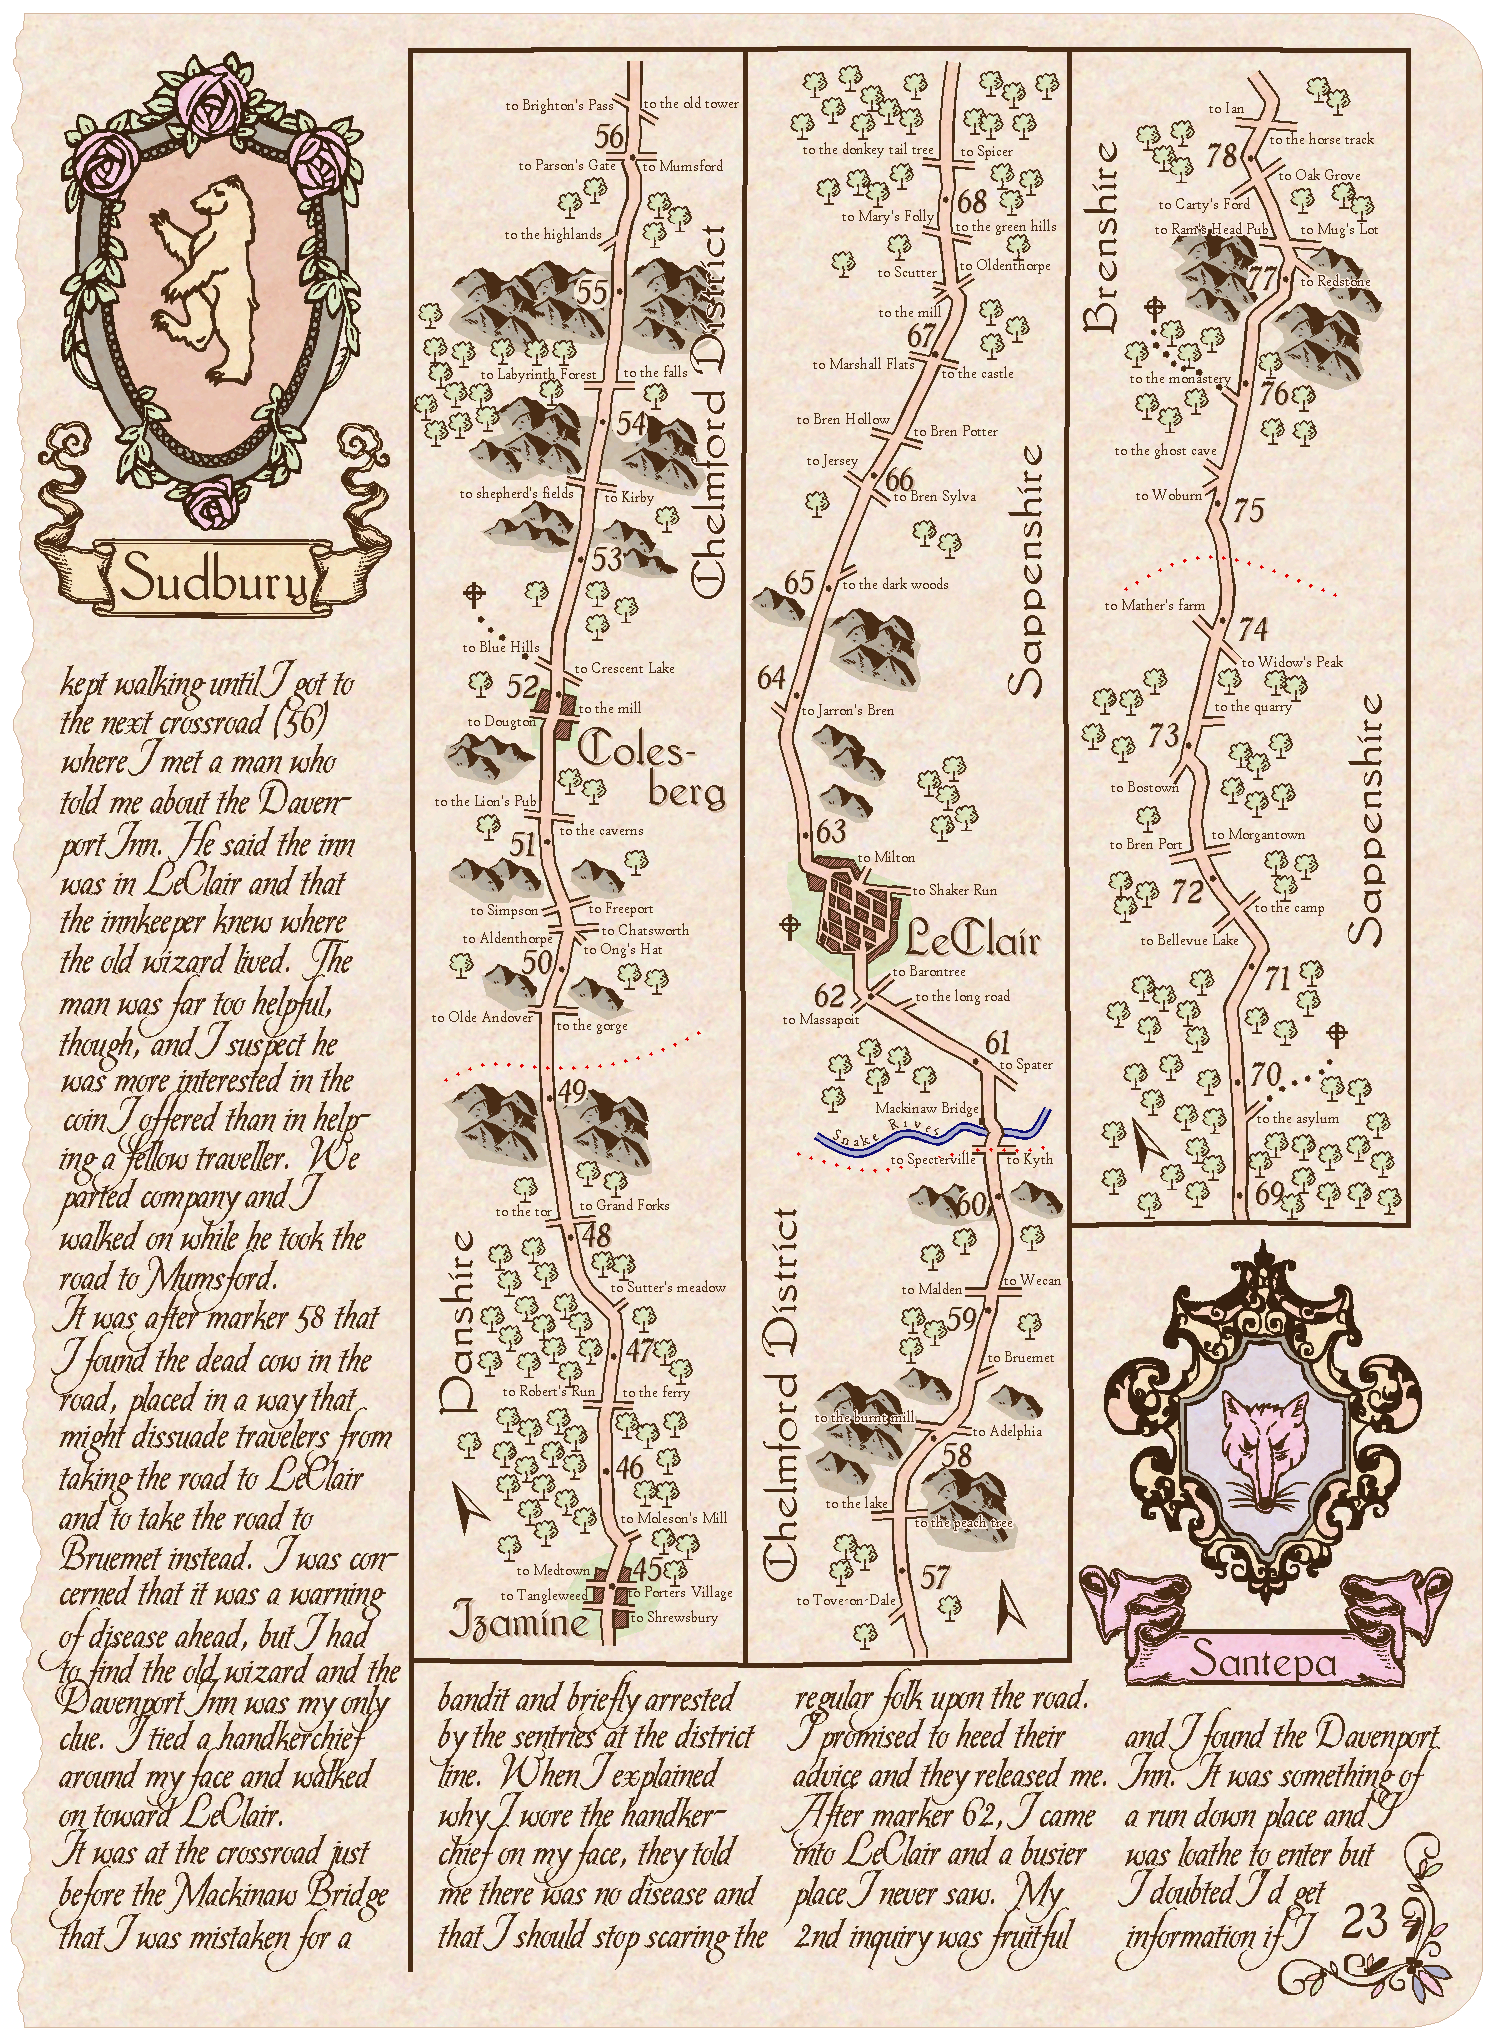 Sudbury
kept walking until I got to
the next crossroad (56)
where I met a man who
told me about the Daven-
port Inn. He said the inn
was in LeClair and that
the innkeeper knew where
the old wizard lived. The
man was far too helpful,
though, and I suspect he
was more interested in the
coin I offered than in help-
ing a fellow traveller. We
parted company and I
walked on while he took the
road to Mumsford.
It was after marker 58 that
I found the dead cow in the
road, placed in a way that
might dissuade travelers from
taking the road to LeClair
and to take the road to
Bruemet instead. I was con-
cerned that it was a warning
of disease ahead, but I had
to find the old wizard and the
Davenport Inn was my only
clue. I tied a handkerchief
around my face and walked
on toward LeClair.
It was at the crossroad just
before the Mackinaw Bridge
that I was mistaken for a
to Brighton's Pass
to the old tower
56
to Parson's Gate
to Mumsford
to the highlands
55
to Labyrinth Forest
to the falls
54
Chelmford District
to shepherd's fields
to Kirby
53
to Blue Hills
to Crescent Lake
52
to the mill
to Dougton
Coles-
berg
to the Lion's Pub
to the caverns
51
to Simpson
to Freeport
to Chatsworth
to Aldenthorpe
to Ong's Hat
50
to Olde Andover
to the gorge
49
to the tor
to Grand Forks
48
Danshire
to Sutter's meadow
47
to Robert's Run
to the ferry
46
to Moleson's Mill
to Medtown
45
to Tangleweed
to Porters Village
Izamine
to Shrewsbury
to the donkey tail tree
to Spicer
68
to Mary's Folly
to the green hills
to Scutter
to Oldenthorpe
to the mill
67
to Marshall Flats
to the castle
to Bren Hollow
to Bren Potter
to Jersey
66
to Bren Sylva
Sappenshire
65
to the dark woods
64
to Jarron's Bren
63
to Milton
to Shaker Run
LeClair
to Barontree
62
to the long road
to Massapoit
61
to Spater
Mackinaw Bridge
Snake River
to Specterville
to Kyth
60
Chelmford District
to Malden
to Wecan
59
to Bruemet
to the burnt mill
to Adelphia
58
to the lake
to the peach tree
57
to Tove-on-Dale
to Ian
to the horse track
78
Brenshire
to Oak Grove
to Carty's Ford
to Ram's Head Pub
to Mug's Lot
77
to Redstone
to the monastery
76
to the ghost cave
to Woburn
75
to Mather's farm
74
to Widow's Peak
to the quarry
73
Sappenshire
to Bostown
to Morgantown
to Bren Port
72
to the camp
to Bellevue Lake
71
70
to the asylum
69
Santepa
bandit and briefly arrested
by the sentries at the district
line. When I explained
why I wore the handker-
chief on my face, they told
me there was no disease and
that I should stop scaring the
regular folk upon the road.
I promised to heed their
advice and they released me.
After marker 62, I came
into LeClair and a busier
place I never saw. My
2nd inquiry was fruitful
and I found the Davenport
Inn. It was something of
a run down place and I
was loathe to enter but
I doubted I'd get
information if I
23